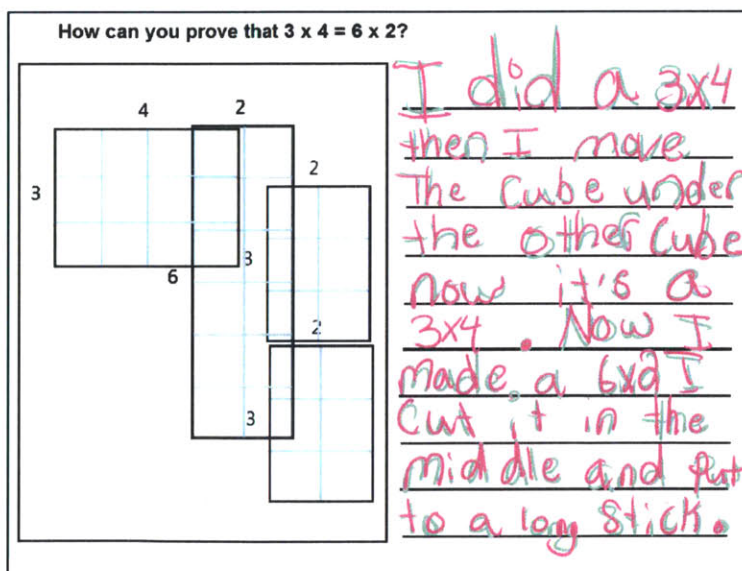 How can you prove that 3 x 4 = 6 x 2?
4
2
3
2
6
3
2
3
I did a 3x4
then I move
The Cube under
the other Cube
now it's a
3x4. Now I
made a 6x2 I
Cut it in the
middle and put
to a long Stick.